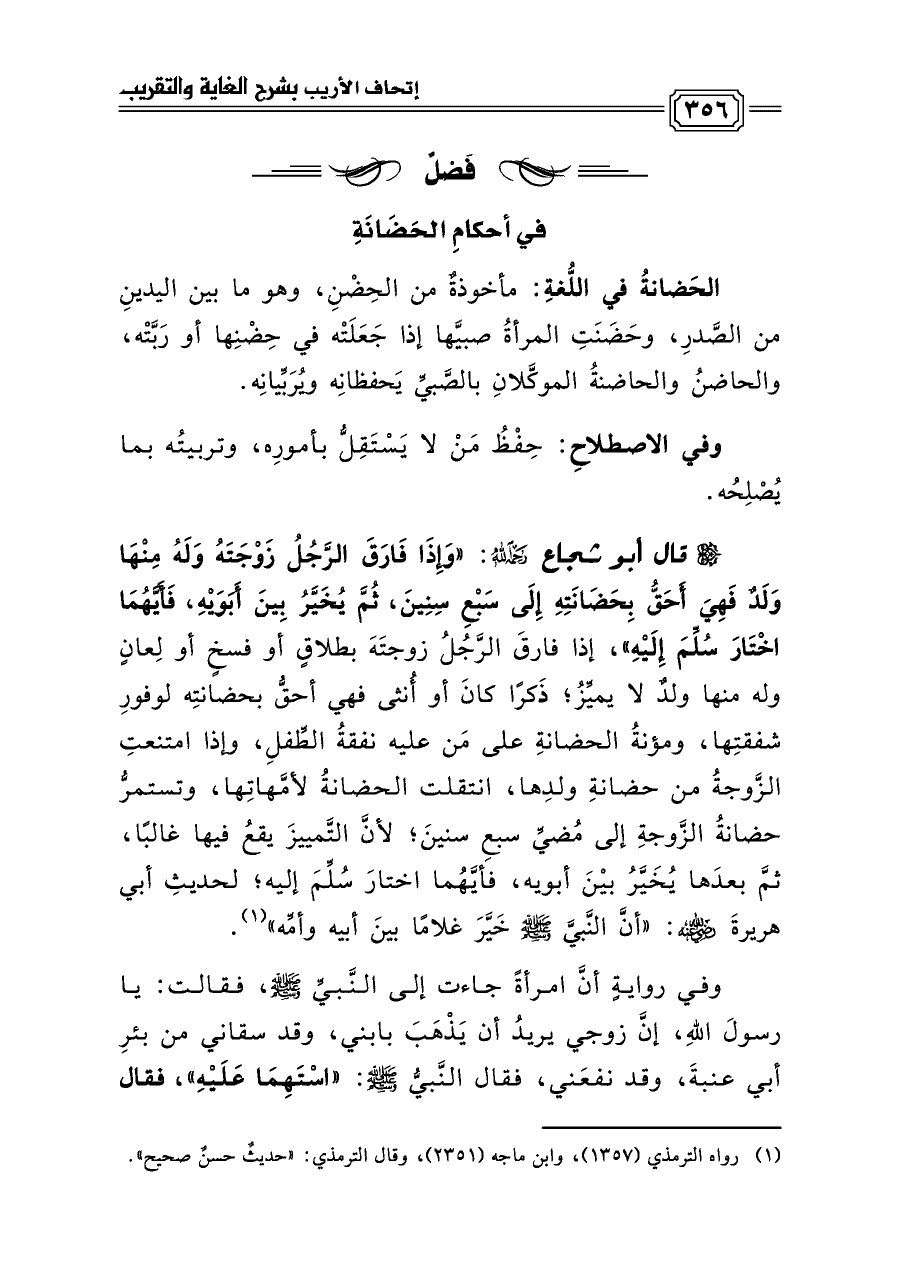 إتحاف الأريب بشرح الغاية والتقريب
٣٥٦
فَصْلٌ
في أحكامِ الحَضَانَةِ
الحَضانةُ في اللُّغةِ: مأخوذةٌ من الحِضْنِ، وهو ما بين اليدينِ
من الصَّدرِ، وحَضَنَتِ المرأةُ صبيَّها إذا جَعَلَتْه في حِضْنِها أو رَبَّتْه،
والحاضنُ والحاضنةُ الموكَّلانِ بالصَّبيِّ يَحفظانِه ويُرَبِّيانِه.
وفي الاصطلاحِ: حِفْظُ مَنْ لا يَسْتَقِلُّ بأمورِه، وتربيتُه بما
يُصْلِحُه.
قال أبو شجاع رَحِمَهُ اللهُ: «وَإِذَا فَارَقَ الرَّجُلُ زَوْجَتَهُ وَلَهُ مِنْهَا
وَلَدٌ فَهِيَ أَحَقُّ بِحَضَانَتِهِ إِلَى سَبْعِ سِنِينَ، ثُمَّ يُخَيَّرُ بِينَ أَبَوَيْهِ، فَأَيَّهُمَا
اخْتَارَ سُلِّمَ إِلَيْهِ»، إذا فارقَ الرَّجُلُ زوجتَهَ بطلاقٍ أو فسخٍ أو لِعانٍ
وله منها ولدٌ لا يميِّزُ؛ ذَكرًا كانَ أو أُنثى فهي أحقُّ بحضانتِه لوفورِ
شفقتِها، ومؤنةُ الحضانةِ على مَن عليه نفقةُ الطِّفلِ، وإذا امتنعتِ
الزَّوجةُ من حضانةِ ولدِها، انتقلت الحضانةُ لأمَّهاتِها، وتستمرُّ
حضانةُ الزَّوجةِ إلى مُضيِّ سبعِ سنينَ؛ لأنَّ التَّمييزَ يقعُ فيها غالبًا،
ثمَّ بعدَها يُخَيَّرُ بيْنَ أبويه، فأيَّهُما اختارَ سُلِّمَ إليه؛ لحديثِ أبي
هريرةَ رضي الله عنه: «أنَّ النَّبيَّ ﷺ خَيَّرَ غلامًا بينَ أبيه وأمِّه»(١).
وفي روايةٍ أنَّ امرأةً جاءت إلى النَّبيِّ ﷺ، فقالت: يا
رسولَ اللهِ، إنَّ زوجي يريدُ أن يَذْهَبَ بابني، وقد سقاني من بئرِ
أبي عنبةَ، وقد نفعَني، فقال النَّبيُّ ﷺ: «اسْتَهِمَا عَلَيْهِ»، فقال
(١) رواه الترمذي (١٣٥٧)، وابن ماجه (٢٣٥١)، وقال الترمذي: «حديثٌ حسنٌ صحيح».